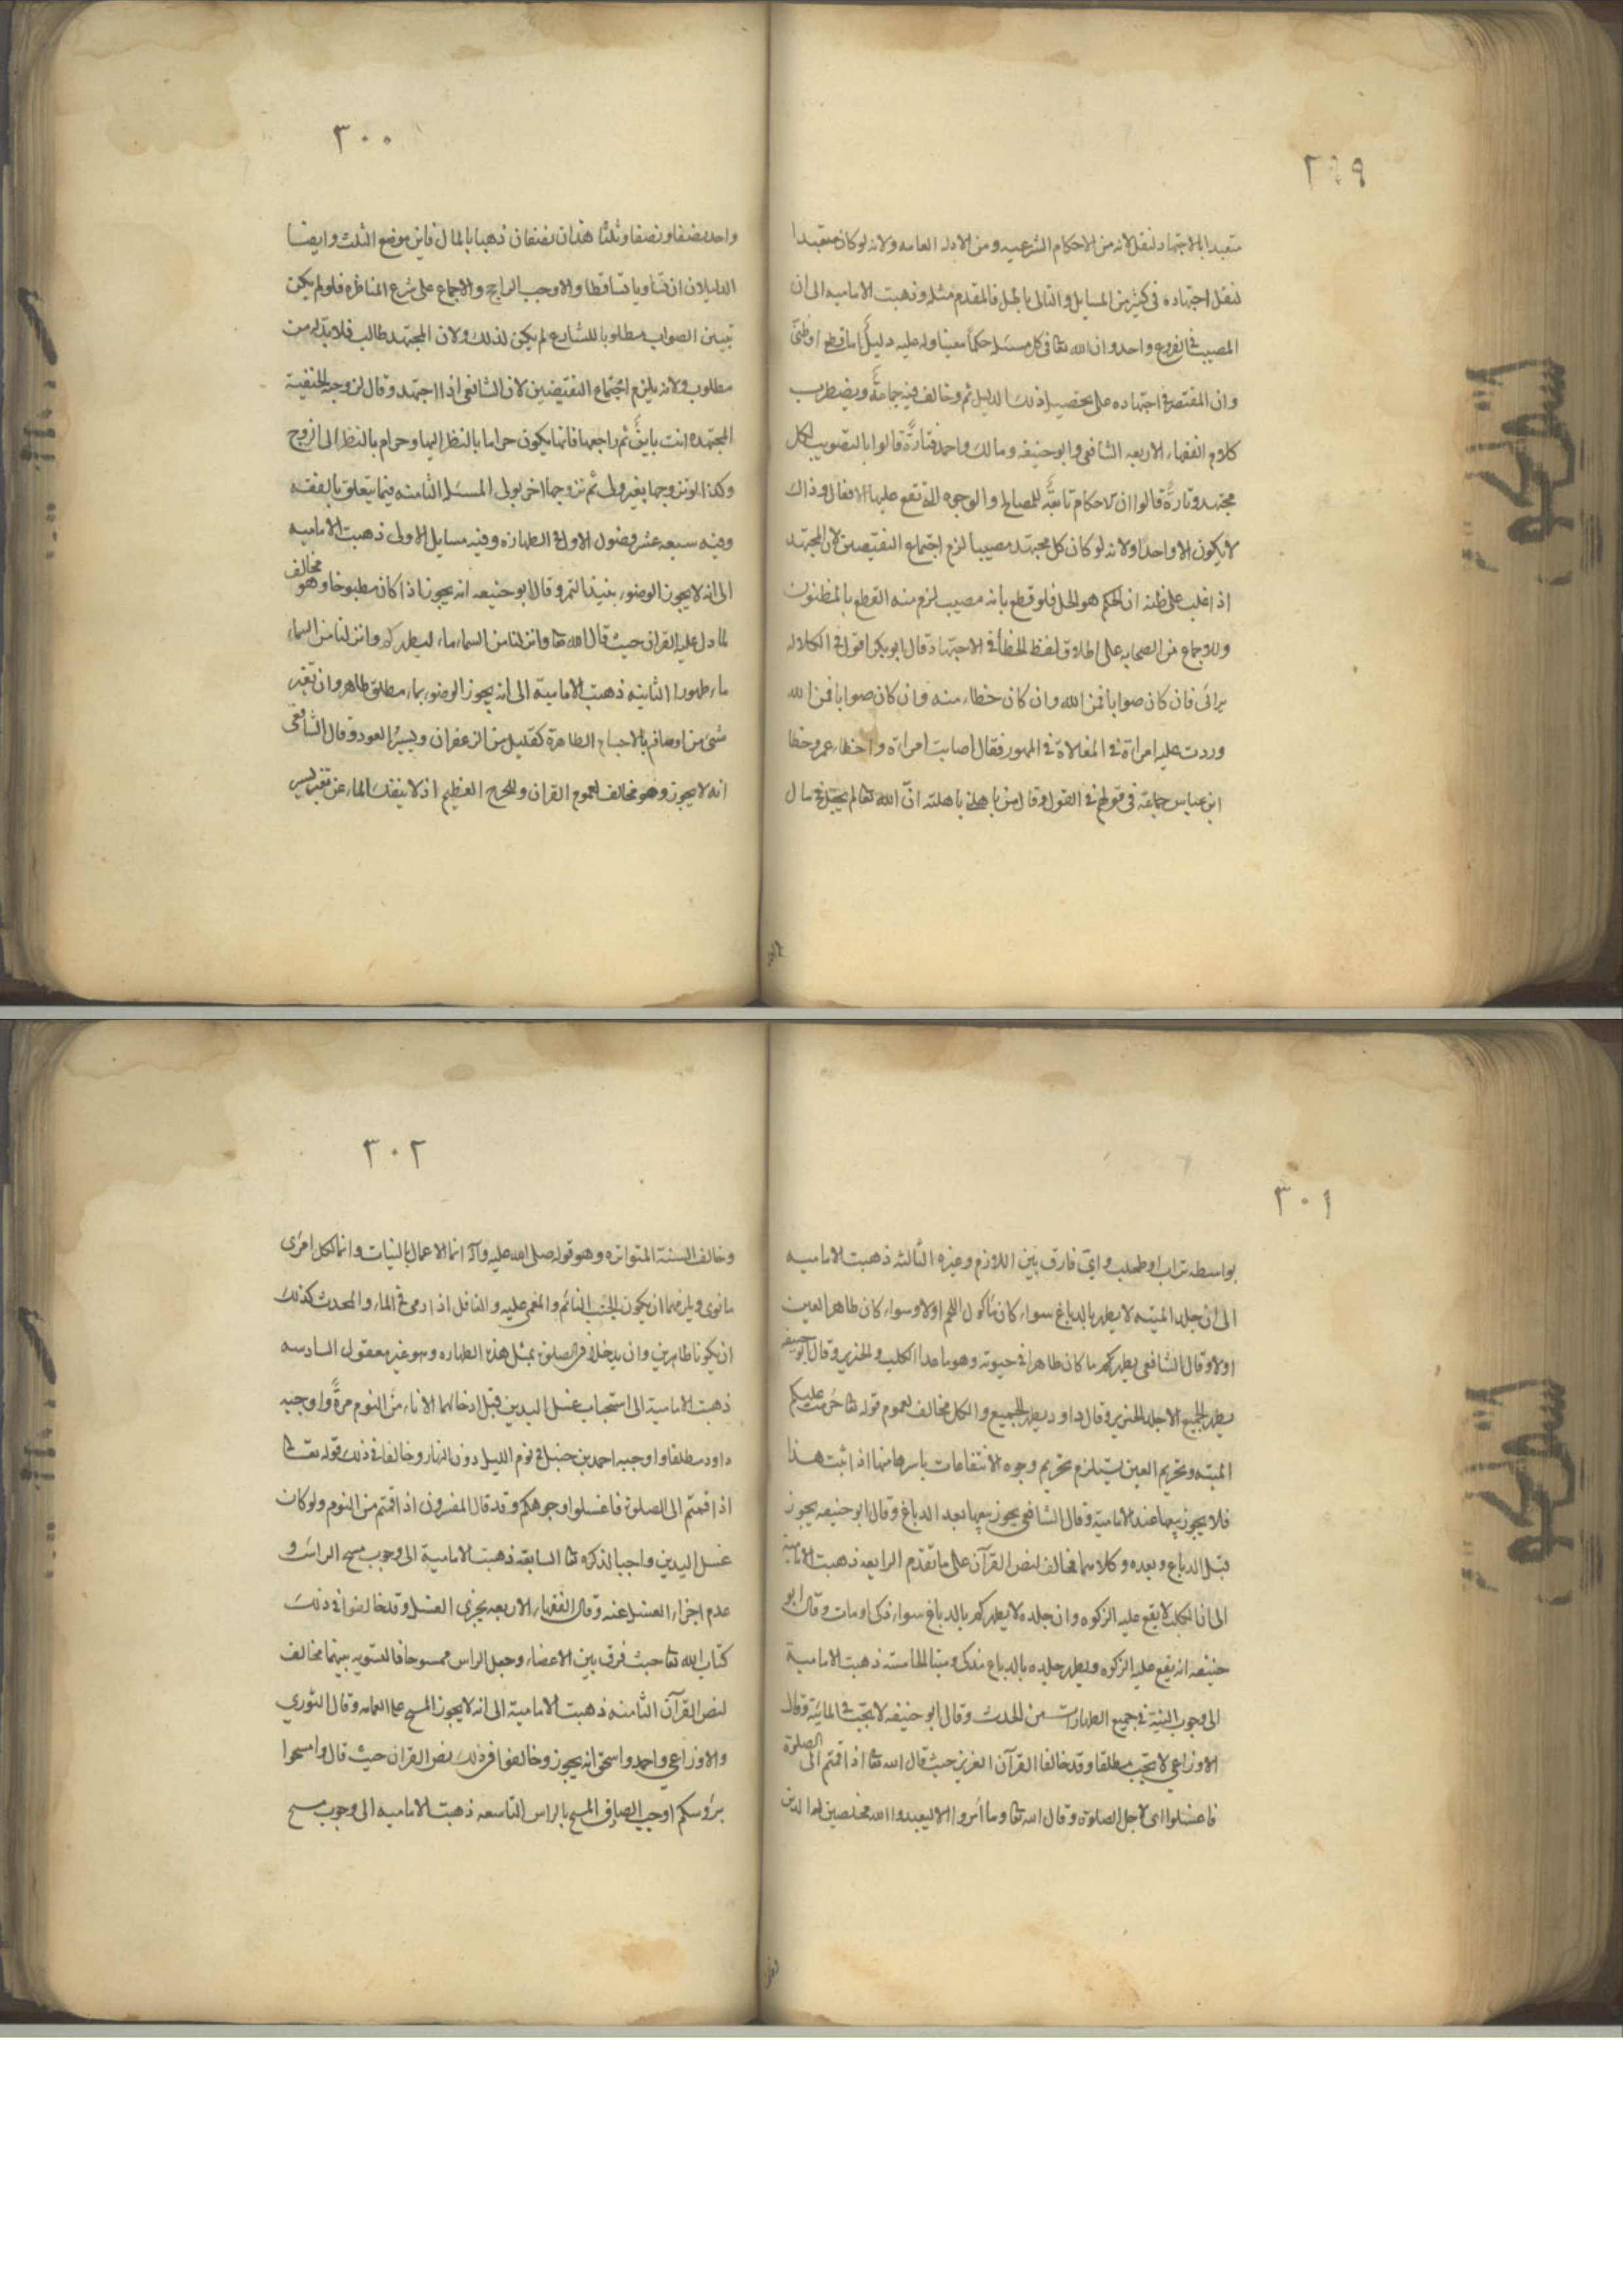 ٢٩٩
متعبدا بالاجتهاد لنقل لانه من الاحكام الشرعيه ومن الادله العامه ولانه لو كان متعبدا
لنقل اجتهاده فى كثير من المسايل والتالى باطل فالمقدم مثله وذهبت الاماميه الى ان
المصيب فى الفروع واحد وان الله تعا فى كل مسئله حكماً معينا وله عليه دليلً اما قطع او ظنىّ
وان المقتصر فى اجتهاده على تحصيل ذلك الدليل ثم وخالف فيه جماعةً ويضطرب
كلام الفقهاء الاربعه الشافعى وابو حنيفه ومالك واحمد فتارةً قالوا بالتصويب لكل
مجتهد وتارةً قالوا ان الاحكام تابعةً للمصالح والوجوه التى تقع عليها الافعال وذلك
لا يكون الا واحداً ولانه لو كان كل مجتهد مصيبا لزم اجتماع النقيضين لان المجتهد
اذا غلب على ظنه ان الحكم هو الحل فلو قطع بانه مصيب لزم منه القطع بالمظنون
وللاجماع من الصحابه على اطلاق لفظ الخطأ فى الاجتهاد قال ابو بكر اقول فى الكلاله
برائى فان كان صوابا فمن الله وان كان خطاء منه وان كان صوابا فمن الله
وردت عليه امراة فى المغلاة فى المهور فقال اصابت امراة واخطاء عمر وخطا
ابن عباس جماعة فى قولهم فى القول وقال من باهلنى باهلته انّ الله تعا لم يجعل فى مال
٣٠٠
واحد نصفا ونصفا وثلثا هذان نصفان ذهبا بالمال فاين موضع الثلث وايضا
الدليلان ان تساويا تساقطا والا وجب الراجح والاجماع على شرع المناظره فلو لم يكن
تبيين الصواب مطلوبا للشارع لم يكن لذلك ولان المجتهد طالب فلا بد له من
مطلوب ولانه يلزم اجتماع النقيضين لان الشافعى اذا اجتهد وقال لزوجه الحنفية
المجتهده انت باينً ثم راجعها فانها يكون حراما بالنظر اليها وحرام بالنظر الى الزوج
وكذا لو تزوجها بغير ولى ثم تزوجها اخر بولى المسئله الثامنه فيما يتعلق بالفقه
وفيه سبعه عشر فصول الاول فى الطهاره وفيه مسايل الاولى ذهبت الاماميه
الى انه لا يجوز الوضوء بنبيذ التمر وقال ابو حنيفه انه يجوز اذا كان مطبوخا وهو مخالف
لما دل عليه القران حيث قال الله تعا وانزلنا من السماء ماء ليطهركم وانزلنا من السماء
ماء طهورا الثانيه ذهبت الامامية الى انه يجوز الوضوء بماء مطلق طاهر وان تغير
شىء من اوصافه بالاجسام الطاهرة كقليل من الزعفران ويسير العود وقال الشافعى
انه لا يجوز وهو مخالف لعموم القران وللحرج العظيم اذ لا ينفك الماء عن تغير يسير
٣٠١
بواسطه تراب او طحلب واىّ فارق بين اللازم وغيره الثالثه ذهبت الاماميه
الى ان جلد الميته لا يطهر بالدباغ سواء كان مأكول اللحم او لا وسواء كان طاهر العين
اولا وقال الشافعى يطهر كل ما كان طاهرا فى حيوته وهو ما عدا الكلب والخنزير وقال ابو حنيفه
يطهر الجميع الا جلد الخنزير وقال داود يطهر الجميع والكل مخالف لعموم قوله تعا حُرمت عليكم
الميته وتحريم العين يستلزم تحريم وجوه الانتفاعات باسرها منها اذا ثبت هذا
فلا يجوز بيعها عند الامامية وقال الشافعى يجوز بيعها بعد الدباغ وقال ابو حنيفه يجوز
قبل الدباغ وبعده وكلاهما مخالف لنص القرآن على ما تقدم الرابعه ذهبت الامامية
الى ان الكلب لا يقع عليه الزكوه وان جلده لا يطهر بالدباغ سواء ذكى او مات وقال ابو
حنيفه انه يقع عليه الزكوه ويطهر جلده بالدباغ مذكى وميتا الخامسته ذهبت الامامية
الى وجوب النية فى جميع الطهارات من الحدث وقال ابو حنيفه لا تجب فى المائية وقال
الاوزاعى لا تجب مطلقا وقد خالفا القرآن العزيز حيث قال الله تعا اذا قمتم الى الصلوة
فاغسلوا اى لاجل الصلوة وقال الله تعا وما امروا الا ليعبدوا الله مخلصين له الدين
٣٠٢
وخالف السنة المتواتره وهو قوله صلى الله عليه وآله انما الاعمال بالنيات وانما لكل امرى
ما نوى ويلزمهما ان يكون الجنب النائم والمغمى عليه والغافل اذا رمى فى الماء والمحدث كذلك
ان يكونا طاهرين وان يدخلا فى الصلوة بمثل هذه الطهاره وهو غير معقول السادسه
ذهبت الامامية الى استحباب غسل اليدين قبل ادخالهما الاناء من النوم مرةً واوجبه
داود مطلقا واوجبه احمد بن حنبل فى نوم الليل دون النهار وخالفا فى ذلك قوله تعا
اذا قمتم الى الصلوة فاغسلوا وجوهكم وقد قال المفسرون اذا قمتم من النوم ولو كان
غسل اليدين واجبا لذكره تعا السابعه ذهبت الامامية الى وجوب مسح الراس و
عدم اجزاء الغسل عنه وقال الفقهاء الاربعه يجزى الغسل وقد خالفوا فى ذلك
كتاب الله تعا حيث فرق بين الاعضاء وجعل الراس ممسوحا فالتسويه بينهما مخالف
لنص القرآن الثامنه ذهبت الامامية الى انه لا يجوز المسح على العمامه وقال الثورى
والاوزاعى واحمد واسحق انه يجوز وخالفوا فى ذلك نص القران حيث قال وامسحوا
برؤسكم اوجب الصاق المسح بالراس التاسعه ذهبت الاماميه الى وجوب مسح